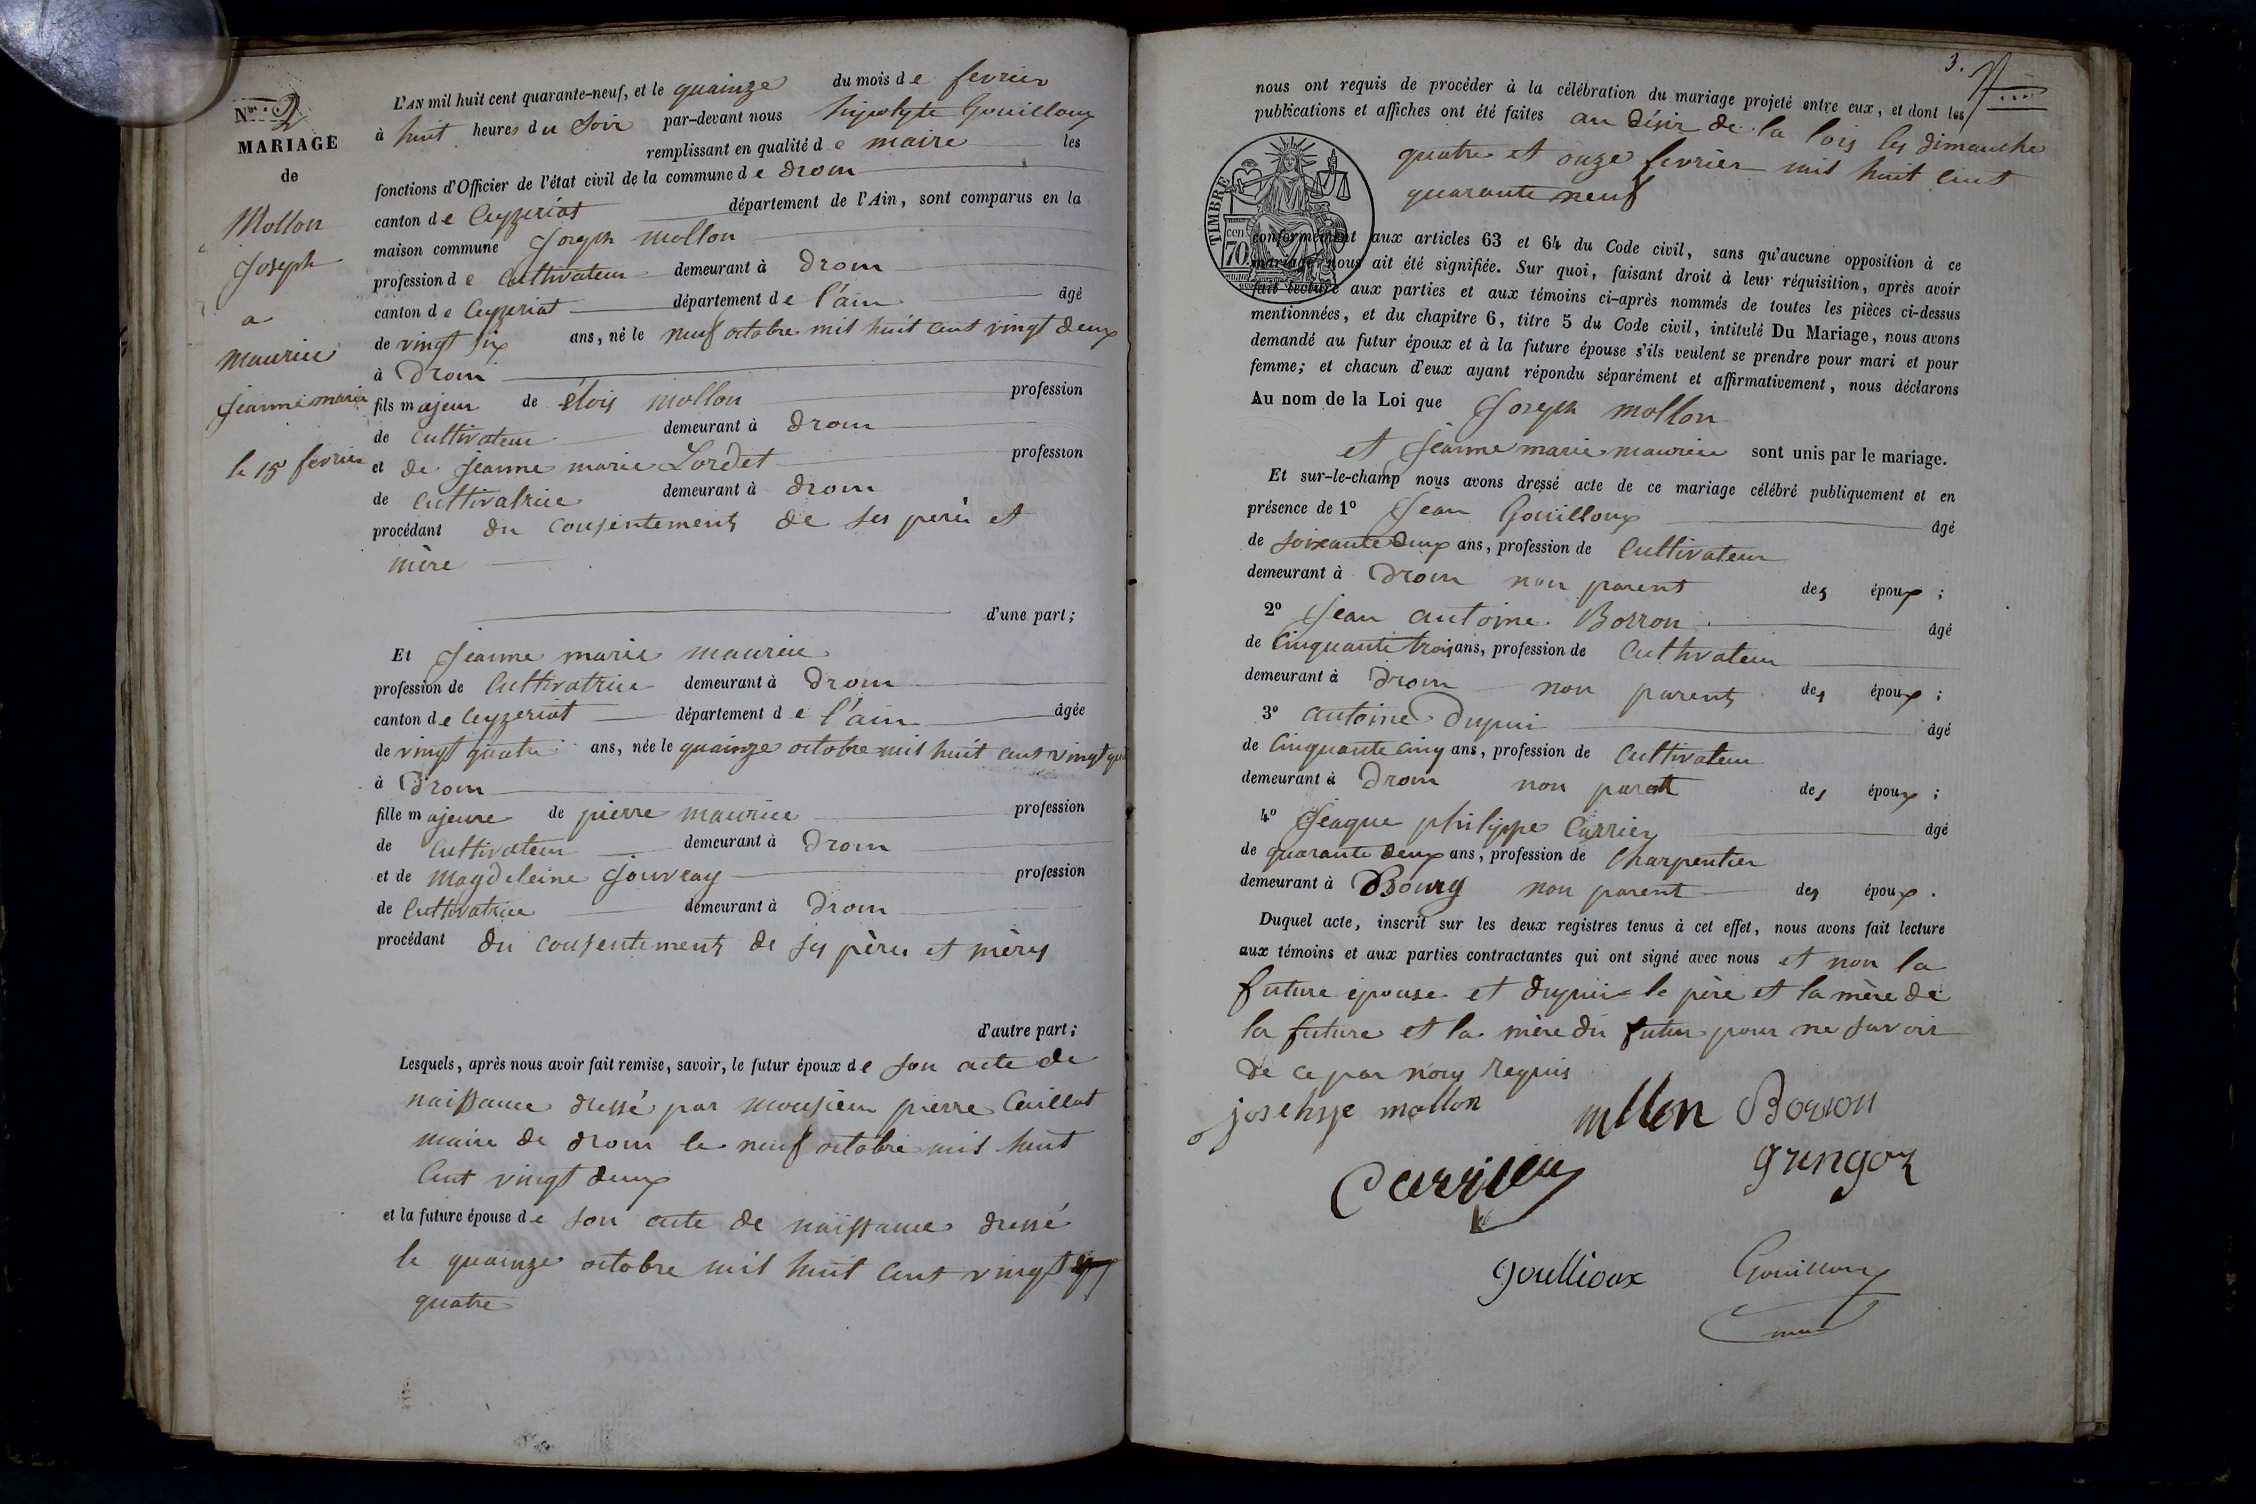 Nro. 2
MARIAGE
de
Mollon
Joseph
a
maurice
jeanne marie
le 15 fevrier
L'AN mil huit cent quarante-neuf, et le quainze du mois de fevrier
à huit heures du Soir par-devant nous hipolyte Gouilloux
remplissant en qualité de maire les
fonctions d'Officier de l'état civil de la commune de drom
canton de Ceyzeriat département de l'Ain, sont comparus en la
maison commune Joseph mollon
profession de Cultivateur demeurant à drom
canton de Ceyzeriat département de l'ain âgé
de vingt six ans, né le neuf octobre mil huit cent vingt deux
à Drom
fils majeur de élois mollon profession
de cultivateur demeurant à drom
et de jeanne marie Lordet profession
de cultivatrice demeurant à drom
procédant du consentements de ses perès et
mère
d'une part;
Et jeanne marie maurice
profession de Cultivatrice demeurant à drom
canton de Ceyzeriat département de l'ain âgée
de vingt quatre ans, née le quainze octobre mil huit cent vingt qu
à Drom
fille majeure de pierre maurice profession
de Cultivateur demeurant à drom
et de magdeleine Jouvray profession
de Cultivatrice demeurant à drom
procédant du consentements de ses pères et mères
d'autre part;
Lesquels, après nous avoir fait remise, savoir, le futur époux de son acte de
naissance dressé par monsieur pierre Cuillat
maire de drom le neuf octobre mil huit
Cent vingt deux
et la future épouse de son acte de naissance dressé
le quainze octobre mil huit Cent vingt
quatre
3.
nous ont requis de procéder à la célébration du mariage projeté entre eux, et dont les
publications et affiches ont été faites au désir de la lois les dimanche
quatre et onze fevrier mil huit cent
quarante neuf
TIMBRE
cen
70
conformément aux articles 63 et 64 du Code civil, sans qu'aucune opposition à ce
mariage nous ait été signifiée. Sur quoi, faisant droit à leur réquisition, après avoir
fait lecture aux parties et aux témoins ci-après nommés de toutes les pièces ci-dessus
mentionnées, et du chapitre 6, titre 5 du Code civil, intitulé Du Mariage, nous avons
demandé au futur époux et à la future épouse s'ils veulent se prendre pour mari et pour
femme; et chacun d'eux ayant répondu séparément et affirmativement, nous déclarons
Au nom de la Loi que Joseph mollon
et jeanne marie maurice sont unis par le mariage.
Et sur-le-champ nous avons dressé acte de ce mariage célébré publiquement et en
présence de 1º Jean Gouilloux âgé
de soixante deux ans, profession de Cultivateur
demeurant à Drom non parent des époux;
2º Jean antoine Borron âgé
de Cinquante trois ans, profession de Cultivateur
demeurant à Drom non parents des époux;
3º antoine Dupui âgé
de Cinquante cinq ans, profession de Cultivateur
demeurant à Drom non parent des époux;
4º Jeaque philippe Carrier âgé
de quarante deux ans, profession de Charpentier
demeurant à Bourg non parent des époux.
Duquel acte, inscrit sur les deux registres tenus à cet effet, nous avons fait lecture
aux témoins et aux parties contractantes qui ont signé avec nous et non la
future épouse et dupui le père et la mère de
la future et la mère du futur pour ne savoir
de ce par nous requis
josehpe mollon mllon Borron
Carrier grengoz
goullioux Gouilloux